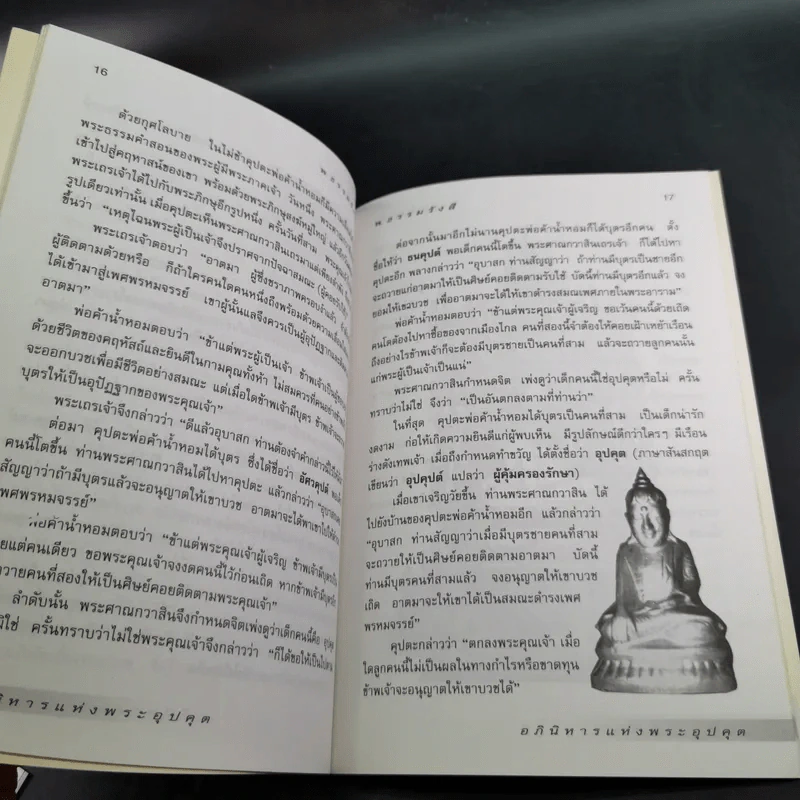 16
ด้วยกุศโลบาย ในไม่ช้าคุปตะพ่อค้าน้ำหอมก็มีความ
พระธรรมคำสอนของพระผู้มีพระภาคเจ้า วันหนึ่ง
เข้าไปสู่คฤหาสน์ของเขา พร้อมด้วยพระภิกษุสงฆ์หมู่ใหญ่
พระเถรเจ้าได้ไปกับพระภิกษุอีกรูปหนึ่ง ครั้นวันที่สาม
รูปเดียวเท่านั้น เมื่อคุปตะเห็นพระศาณกวาสินเถรมาแต่
ขึ้นว่า “เหตุไฉนพระผู้เป็นเจ้าจึงปราศจากปัจฉาสมณะ
พระเถรเจ้าตอบว่า “อาตมา ผู้ซึ่งชราภาพครอบงำแล้ว
ผู้ติดตามด้วยหรือ ก็ถ้าใครคนใดคนหนึ่งถึงพร้อมด้วยความ
ได้เข้ามาสู่เพศพรหมจรรย์ เขาผู้นั้นแลจึงควรเป็นผู้อุปัฏฐาก
อาตมา”
พ่อค้าน้ำหอมตอบว่า “ข้าแต่พระผู้เป็นเจ้า ข้าพเจ้าเป็น
ด้วยชีวิตของคฤหัสถ์และยินดีในกามคุณทั้งห้า ไม่สมควรที่
จะออกบวชเพื่อมีชีวิตอย่างสมณะ แต่เมื่อใดข้าพเจ้ามีบุตร ข้าพเจ้า
บุตรให้เป็นอุปัฏฐากของพระคุณเจ้า”
พระเถรเจ้าจึงกล่าวว่า “ดีแล้วอุบาสก ท่านต้องจำคำกล่าวนี้
ต่อมา คุปตะพ่อค้าน้ำหอมได้บุตร ซึ่งได้ชื่อว่า อัศวคุปต์
คนนี้โตขึ้น ท่านพระศาณกวาสินได้ไปหาคุปตะ แล้วกล่าวว่า
สัญญาว่าถ้ามีบุตรแล้วจะอนุญาตให้เขาบวช อาตมาจะได้พาเขาไป
เพศพรหมจรรย์”
พ่อค้าน้ำหอมตอบว่า “ข้าแต่พระคุณเจ้าผู้เจริญ ข้าพเจ้ามี
ยแต่คนเดียว ขอพระคุณเจ้าจงงดคนนี้ไว้ก่อนเถิด หากข้าพเจ้า
วายคนที่สองให้เป็นศิษย์คอยติดตามพระคุณเจ้า”
ลำดับนั้น พระศาณกวาสินจึงกำหนดจิตเพ่งดูว่าเด็กคนนี้คือ
ใช่ ครั้นทราบว่าไม่ใช่พระคุณเจ้าจึงกล่าวว่า “ก็ได้ขอให้เป็นไป
หารแห่งพระอุปคุต
พ.ธรรมรังสี
17
ต่อจากนั้นมาอีกไม่นานคุปตะพ่อค้าน้ำหอมก็ได้บุตรอีกคน ตั้ง
ชื่อให้ว่า ธนคุปต์ พอเด็กคนนี้โตขึ้น พระศาณกวาสินเถรเจ้า ก็ได้ไปหา
คุปตะอีก พลางกล่าวว่า “อุบาสก ท่านสัญญาว่า ถ้าท่านมีบุตรเป็นชายอีก
จะถวายแก่อาตมาให้เป็นศิษย์คอยติดตามรับใช้ บัดนี้ท่านมีบุตรอีกแล้ว จง
ยอมให้เขาบวช เพื่ออาตมาจะได้ให้เขาดำรงสมณเพศภายในพระอาราม”
พ่อค้าน้ำหอมตอบว่า “ข้าแต่พระคุณเจ้าผู้เจริญ ขอเว้นคนนี้ด้วยเถิด
คนโตต้องไปหาซื้อของจากเมืองไกล คนที่สองนี้จำต้องให้คอยเฝ้าเหย้าเรือน
ถึงอย่างไรข้าพเจ้าก็จะต้องมีบุตรชายเป็นคนที่สาม แล้วจะถวายลูกคนนั้น
แก่พระผู้เป็นเจ้าเป็นแน่”
พระศาณกวาสินกำหนดจิต เพ่งดูว่าเด็กคนนี้ใช่อุปคุตหรือไม่ ครั้น
ทราบว่าไม่ใช่ จึงว่า “เป็นอันตกลงตามที่ท่านว่า”
ในที่สุด คุปตะพ่อค้าน้ำหอมได้บุตรเป็นคนที่สาม เป็นเด็กน่ารัก
งดงาม ก่อให้เกิดความยินดีแก่ผู้พบเห็น มีรูปลักษณ์ดีกว่าใครๆ มีเรือน
ร่างดังเทพเจ้า เมื่อถึงกำหนดทำขวัญ ได้ตั้งชื่อว่า อุปคุต (ภาษาสันสกฤต
เขียนว่า อุปคุปต์ แปลว่า ผู้คุ้มครองรักษา)
เมื่อเขาเจริญวัยขึ้น ท่านพระศาณกวาสิน ได้
ไปยังบ้านของคุปตะพ่อค้าน้ำหอมอีก แล้วกล่าวว่า
“อุบาสก ท่านสัญญาว่าเมื่อมีบุตรชายคนที่สาม
จะถวายให้เป็นศิษย์คอยติดตามอาตมา บัดนี้
ท่านมีบุตรคนที่สามแล้ว จงอนุญาตให้เขาบวช
เถิด อาตมาจะให้เขาได้เป็นสมณะดำรงเพศ
พรหมจรรย์”
คุปตะกล่าวว่า “ตกลงพระคุณเจ้า เมื่อ
ใดลูกคนนี้ไม่เป็นผลในทางกำไรหรือขาดทุน
ข้าพเจ้าจะอนุญาตให้เขาบวชได้”
อภินิหารแห่งพระอุปคุต